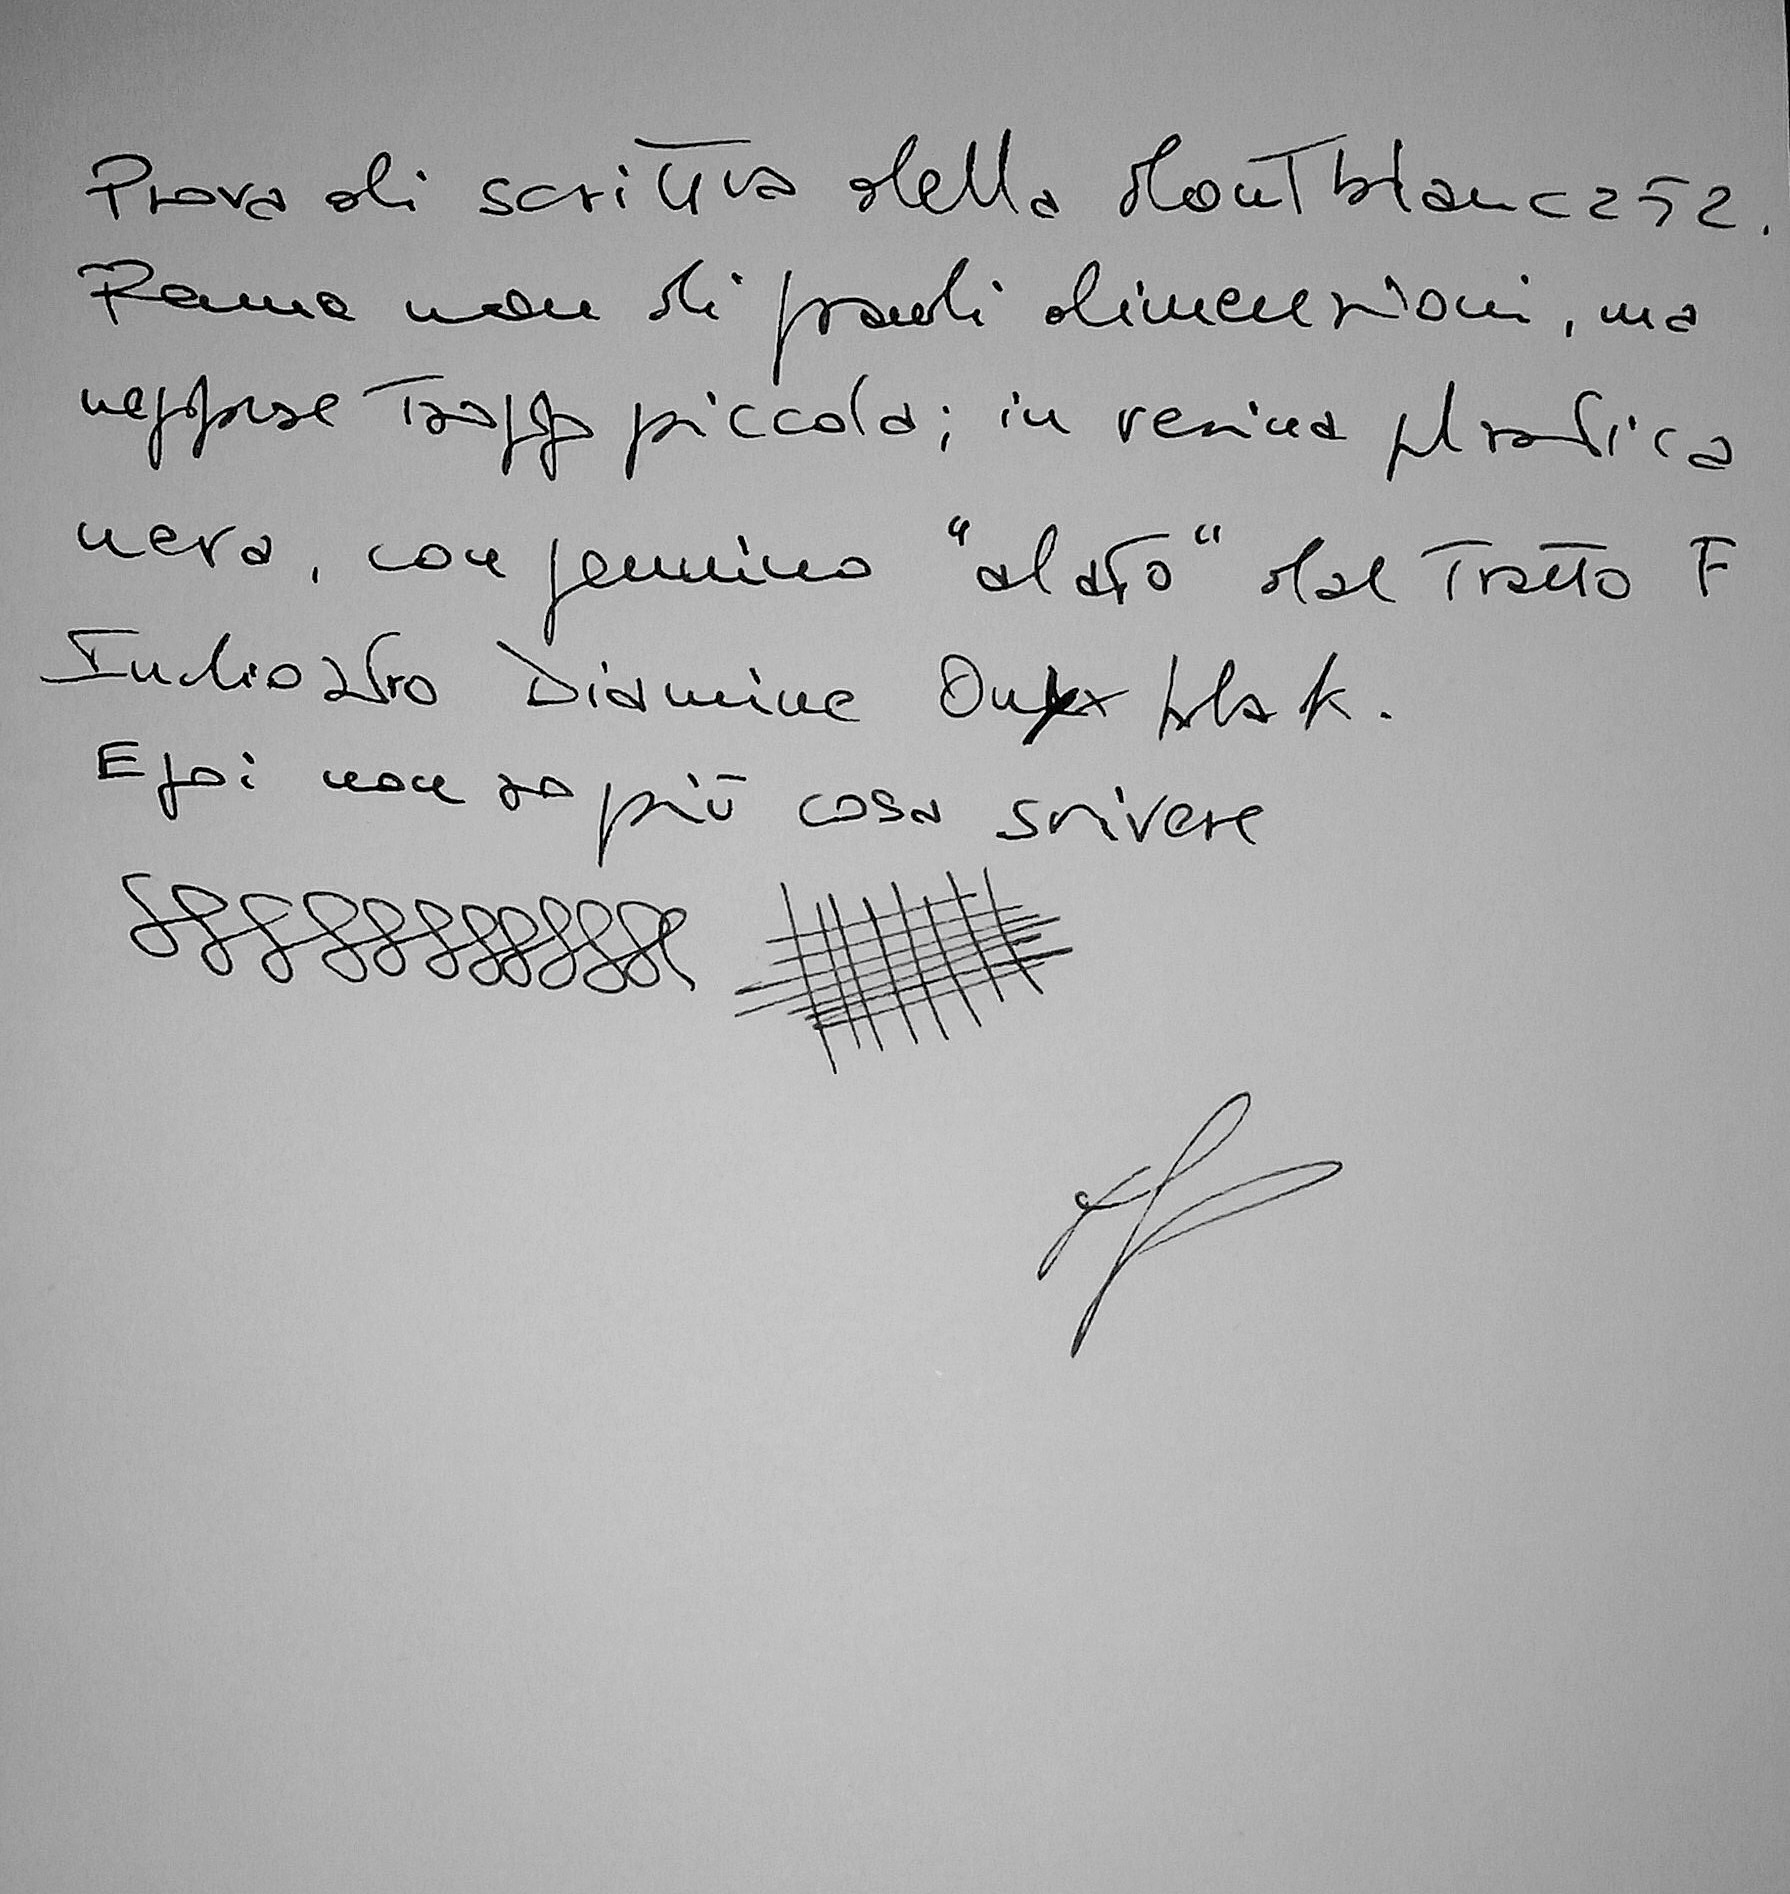 Prova di scrittura della Montblanc 252.
Penna non di grandi dimensioni, ma
neppure troppo piccola; in resina plastica
nera, con pennino "alato" dal tratto F
Inchiostro Diamine Onyx blak.
E poi non so più cosa scrivere